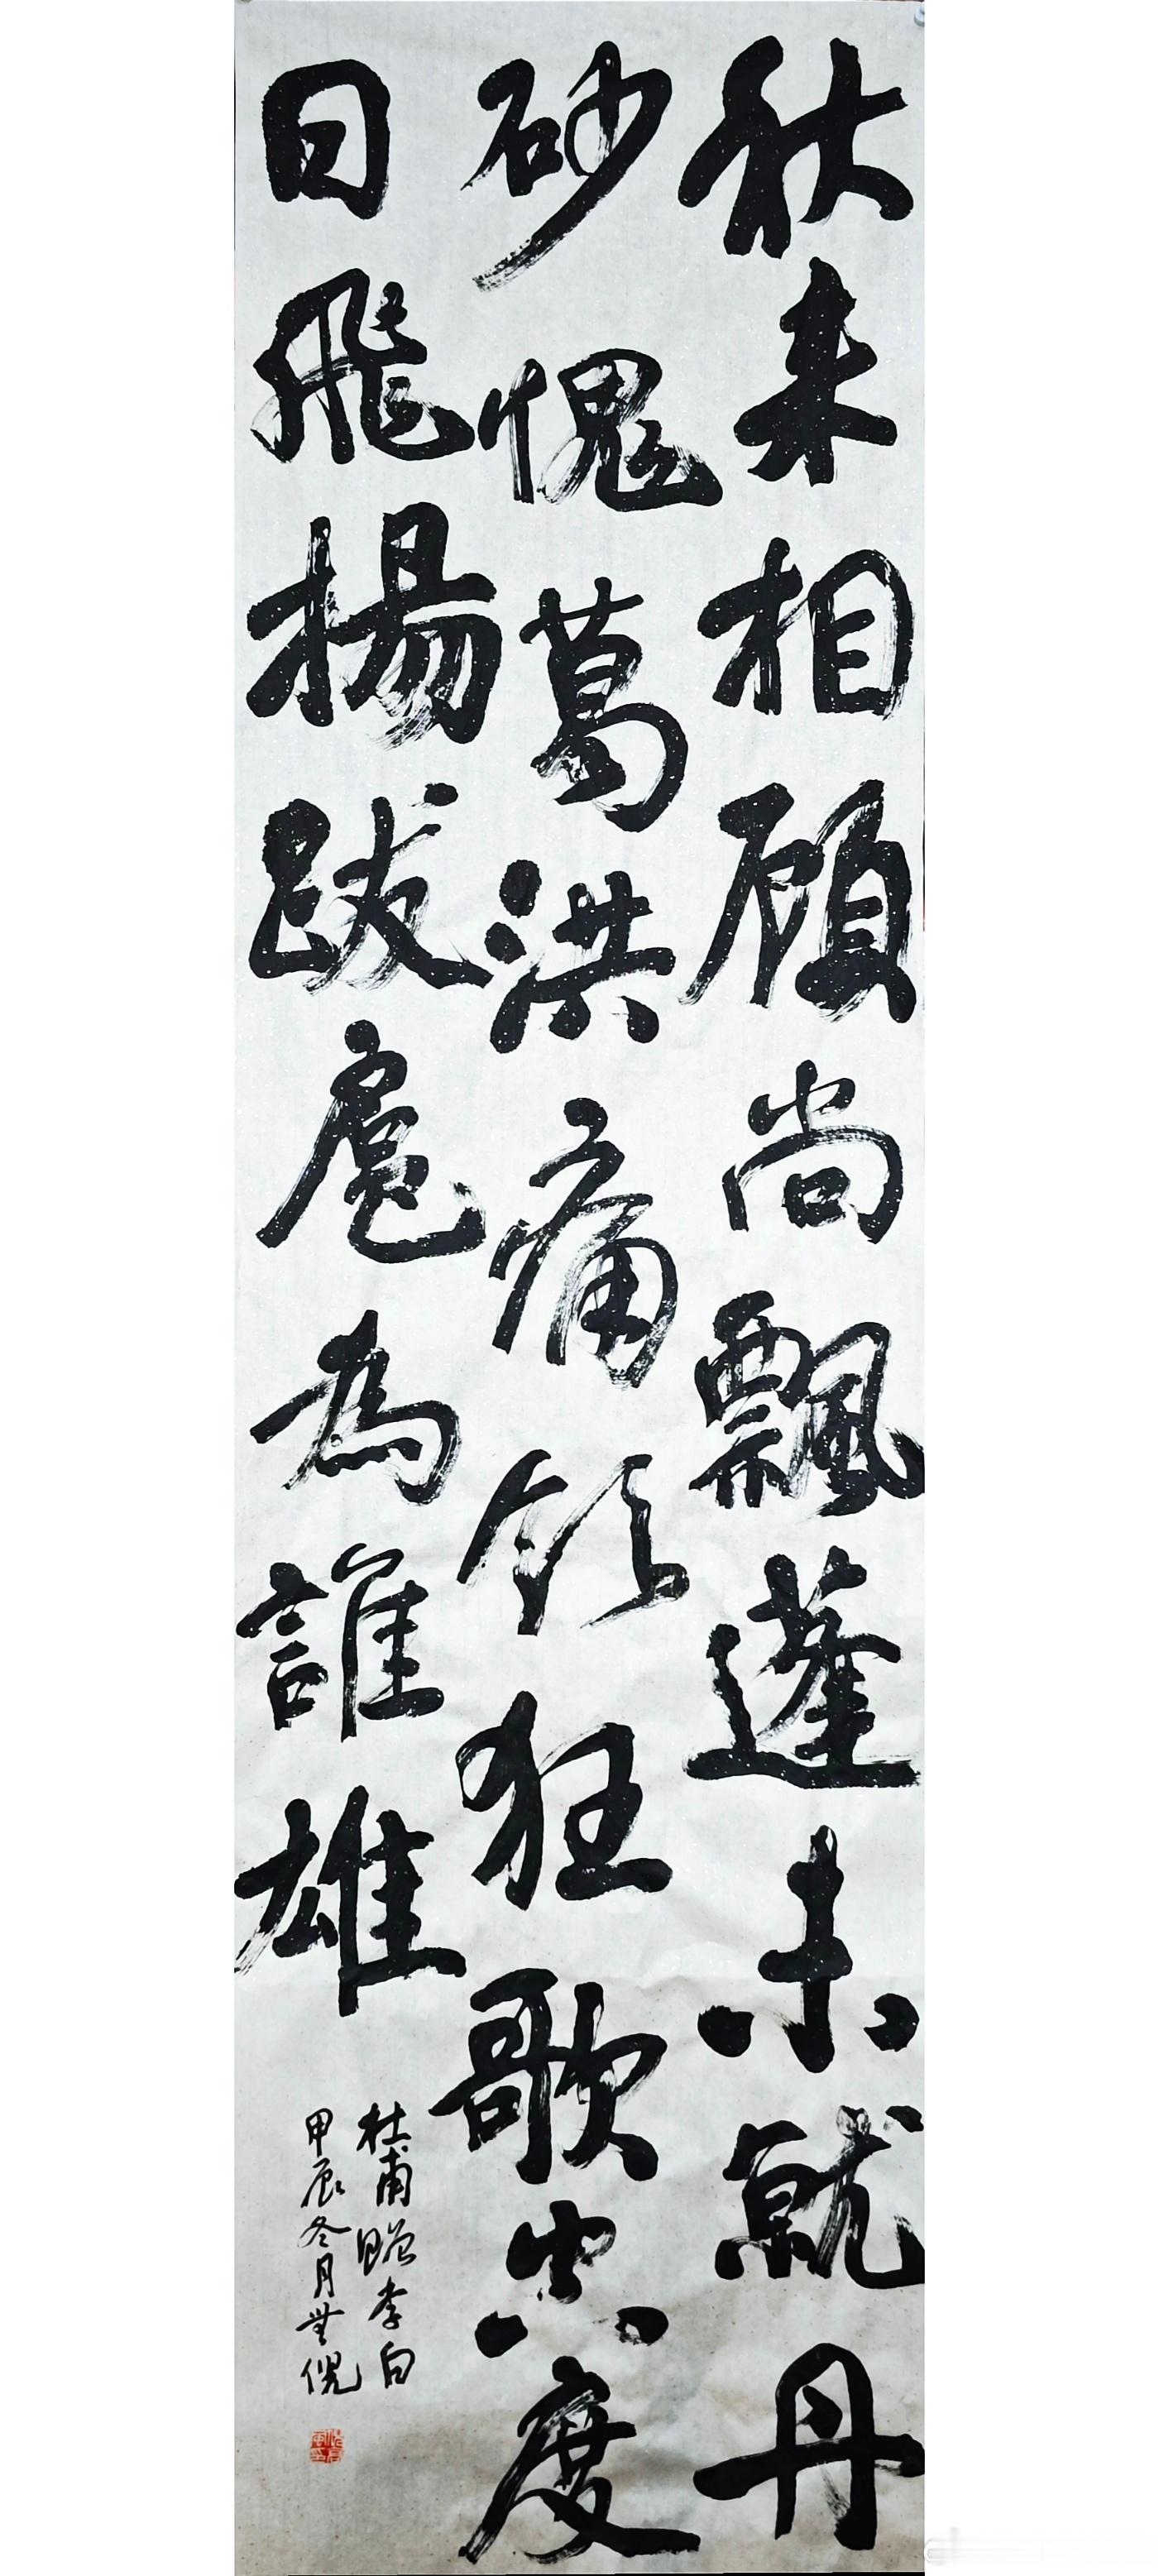 秋来相顾尚飄蓬未就丹
砂愧葛洪痛飲狂歌空度
日飛揚跋扈為誰雄
杜甫贈李白
甲辰冬月無倪